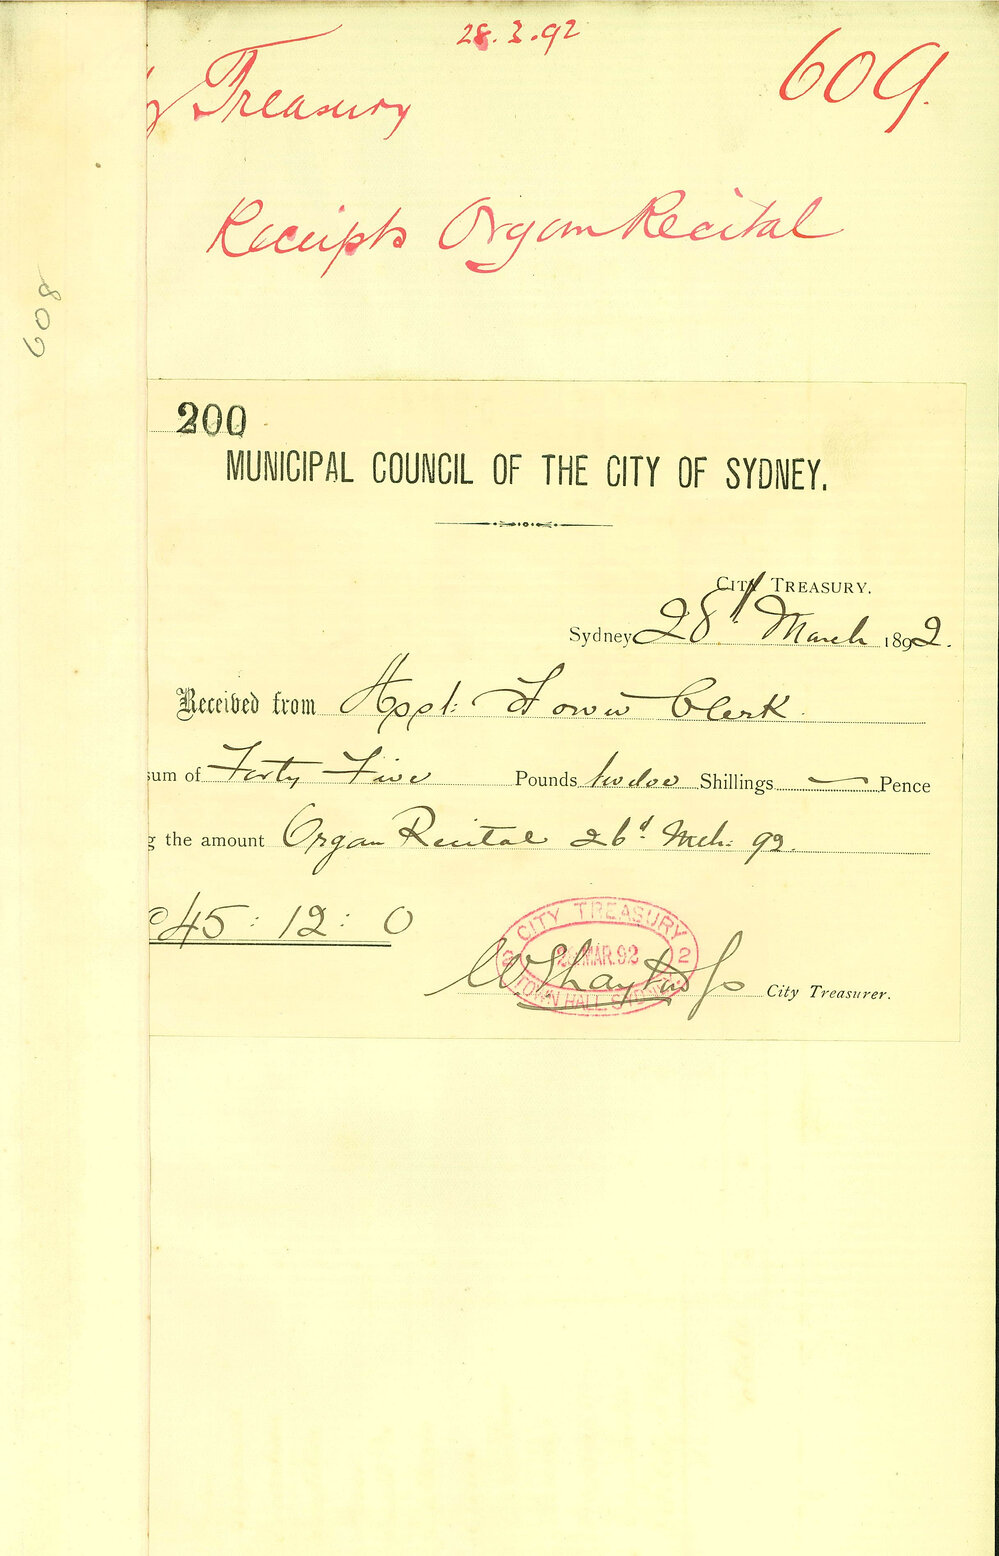 28.3.92
609.
y Treasury
Receipts Organ Recital
608
200
MUNICIPAL COUNCIL OF THE CITY OF SYDNEY.
CITY TREASURY.
Sydney 28th March 1892.
Received from Asst: Town Clerk
sum of Forty Five Pounds twelve Shillings — Pence
g the amount Organ Recital 26th Mch: 92.
45 : 12 : 0
CITY TREASURY
2 28 MAR. 92 2
TOWN HALL SYDNEY
City Treasurer.